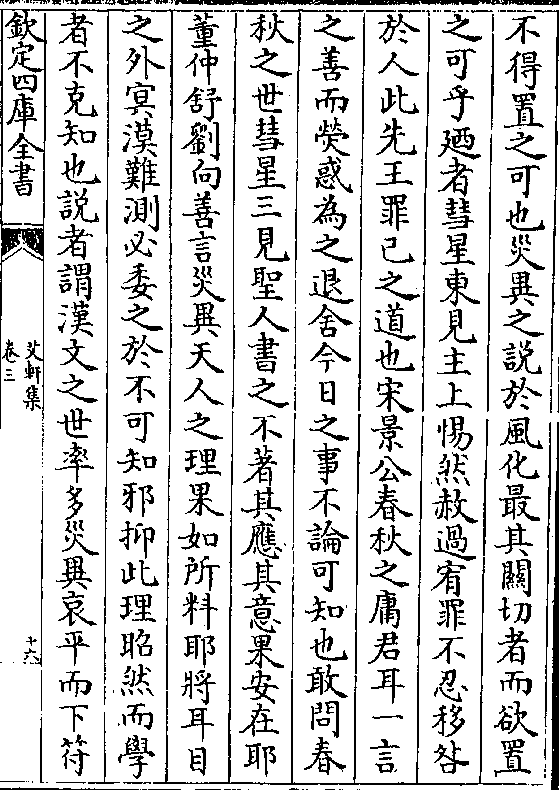 不得置之可也災異之説於風化最其關切者而欲置
之可乎廼者彗星東見主上惕然赦過宥罪不忍移咎
於人此先王罪己之道也宋景公春秋之庸君耳一言
之善而熒惑為之退舍今日之事不論可知也敢問春
秋之世彗星三見聖人書之不著其應其意果安在耶
董仲舒劉向善言災異天人之理果如所料耶將耳目
之外冥漠難測必委之於不可知邪抑此理昭然而學
者不克知也説者謂漢文之世率多災異哀平而下符
欽定四庫全書
艾軒集
卷三
十六